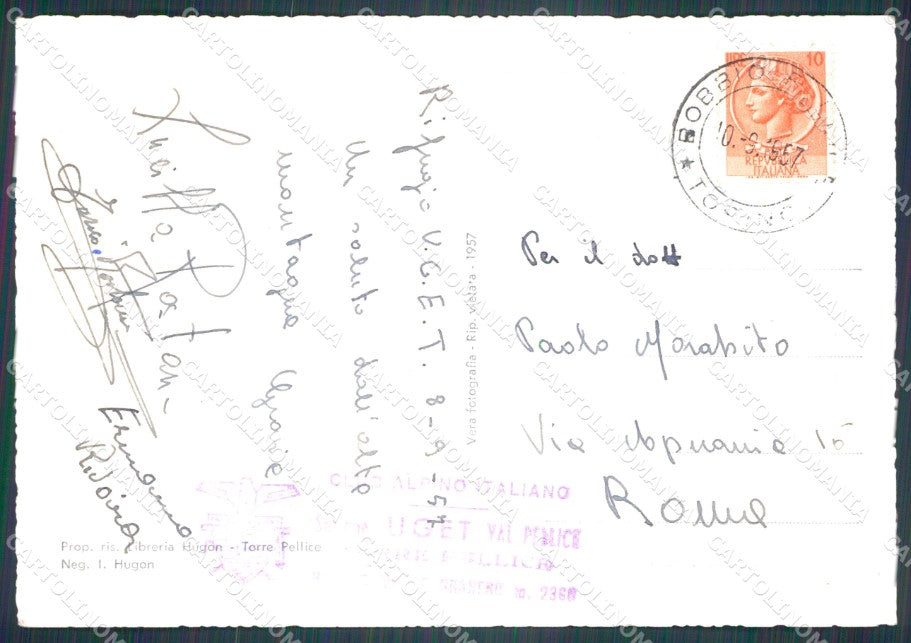 Rifugio V.G.E.T. 8-9-57
Un saluto dall'alta
montagna Grazie
Ermanno
Rivoira
LIRE 10
REPVBBLICA
ITALIANA
BOBBIO
10.9.1957
TORINO
Per il dott
Paolo Morabito
Via Apuania 15
Roma
Vera fotografia - Rip. vietata - 1957
CLUB ALPINO ITALIANO
UGET VAL PELLICE
TORRE PELLICE
GRANERO m. 2360
Prop. ris. Libreria Hugon - Torre Pellice
Neg. I. Hugon
CARTOLINOMANIA